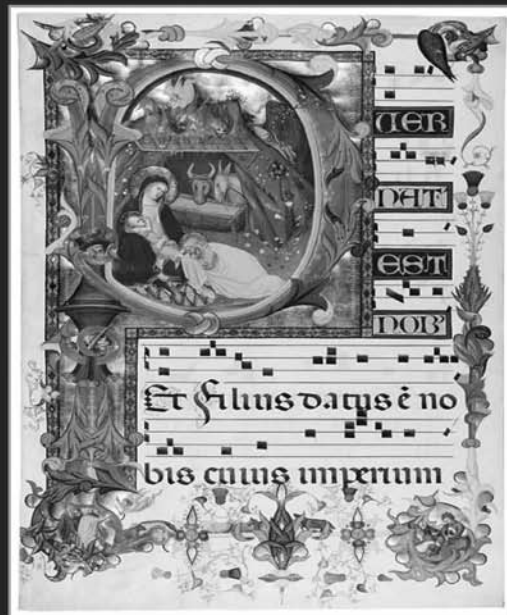 P
UER
NAT'
EST
NOB'
Et filius datus ē no
bis cuius imperium